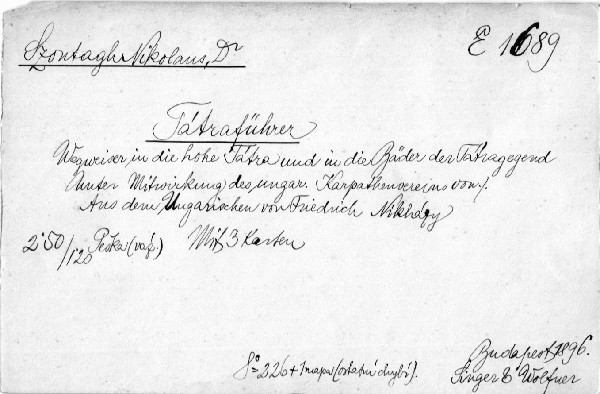 Szontagh Nikolaus, Dr
E 1689
Tátraführer
Wegweiser in die hohe Tátra und in die Bäder der Tátragegend
Unter Mitwirkung des ungar. Karpathenvereins von /.
Aus dem Ungarischen von Friedrich Nikházy
2·50/120 Mit 3 Karten
8° 226 + 1 mapa (ostatní chybí).
Budapest, 1896.
Singer & Wolfner